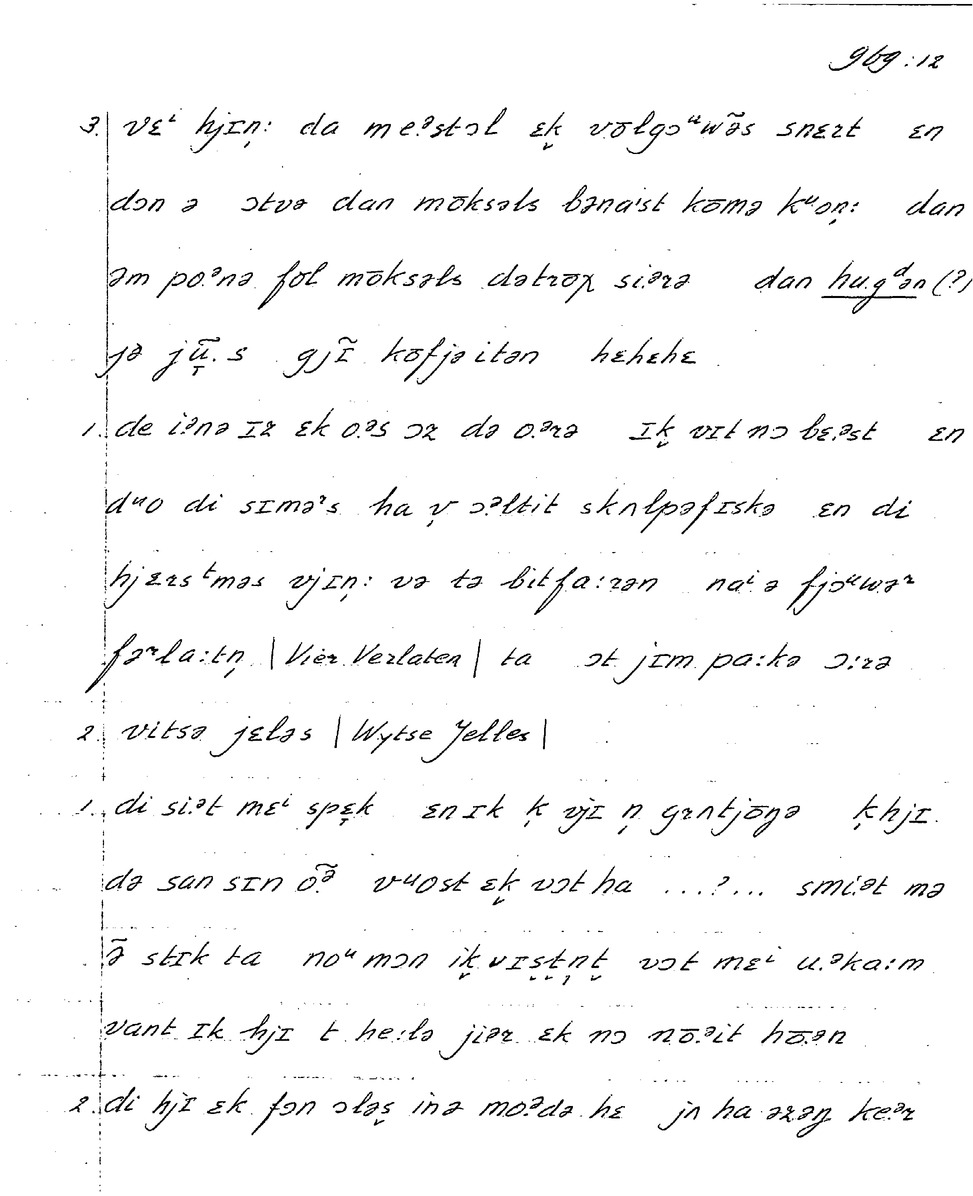 gbg:12
3. vɛⁱ hjɪn̩: da me.ᵊstɔl ɛk̬ vōlgɔᵘw̃əs snɛrt ɛn
dɔn ə ɔtvə dan mōksəls bənaⁱst kōmə kᵘon̩: dan
əm po.ᵊnə fōl mōksəls dətrōχ si.ᵊrə dan hu.gᵈən (?)
jə jũ̞.s gjɪ̃ kōfjəitən hɛhɛhɛ
1. de i.ᵊnə ɪz ɛk o.ᵊs ɔz də o.ᵊrə ɪk̬ vɪt nɔ bɛ.ᵊst ɛn
dᵘo di sɪməʳs ha v̩ ɔ.ᵊltit skʌlpəfɪskə ɛn di
hjɛrsᵗməs vjɪn̩: və tə bitfa:rən naⁱ ə fjɔᵘwəʳ
fəʳla:tn̩ | Vier Verlaten | ta ɔt jɪm pa:kə ɔ:rə
2. vitsə jɛləs | Wytse Jelles |
1. di si.ᵊt mɛⁱ spɛ̞k ɛn ɪk k̩ vjɪ n̩ grʌntjōŋə k̩ hjɪ.
də san sɪn õ.ᵊ vᵘost ɛk̬ vɔt ha ...?... smi.ᵊt mə
ə̃ stɪk ta noᵘ mɔn ik̬ vɪs̬t̬n̩t̬ vɔt mɛⁱ u.ᵊka:m
vant ɪk hjɪ t he:lə jiər ɛk nɔ nō.ᵊit hō.ᵊn
2. di hjɪ ɛk fɔn ɔləs̬ inə mo.ᵊdə hɛ jʌ ha əzəŋ ke.ᵊr